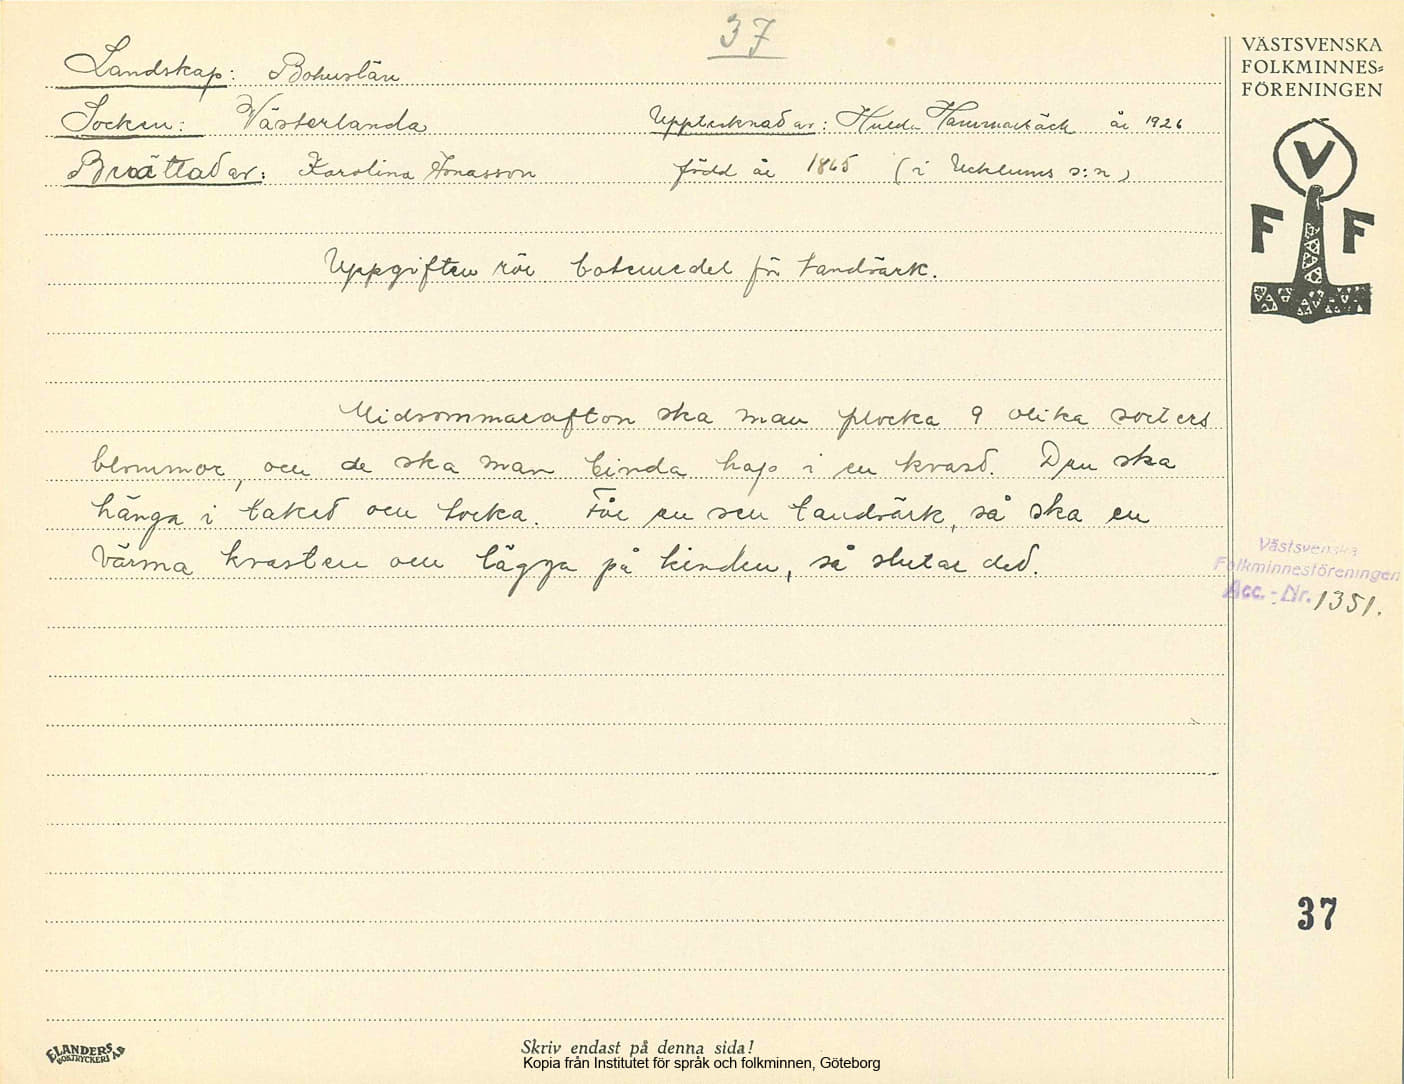 37
VÄSTSVENSKA
FOLKMINNES=
FÖRENINGEN
Landskap: Bohuslän
Socken: Västerlanda Upptecknad av: Hulda Hammarbäck år 1926
Berättad av: Karolina Jonasson född år 1865 (i Ucklums s:n)
V
F F
Uppgiften rör botemedel för tandvärk.
Midsommarafton ska man plocka 9 olika sorters
blommor, och de ska man binda hop i en kvast. Den ska
hänga i taket och torka. Får en sen tandvärk, så ska en
värma kvasten och lägga på kinden, så slutar det.
Västsvenska
Folkminnesföreningen
Acc. - Nr. 1351.
37
ELANDERS
BOKTRYCKERI A.B
Skriv endast på denna sida!
Kopia från Institutet för språk och folkminnen, Göteborg